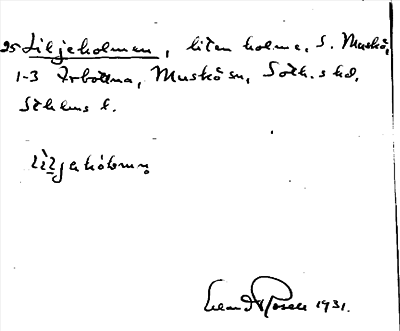 25 Liljeholmen, liten holme, S. Muskö,
1-3 Arbottna, Muskö sn, Soth. s hd,
Sthlms l.
liljehólmen
Erland Rosell 1931.